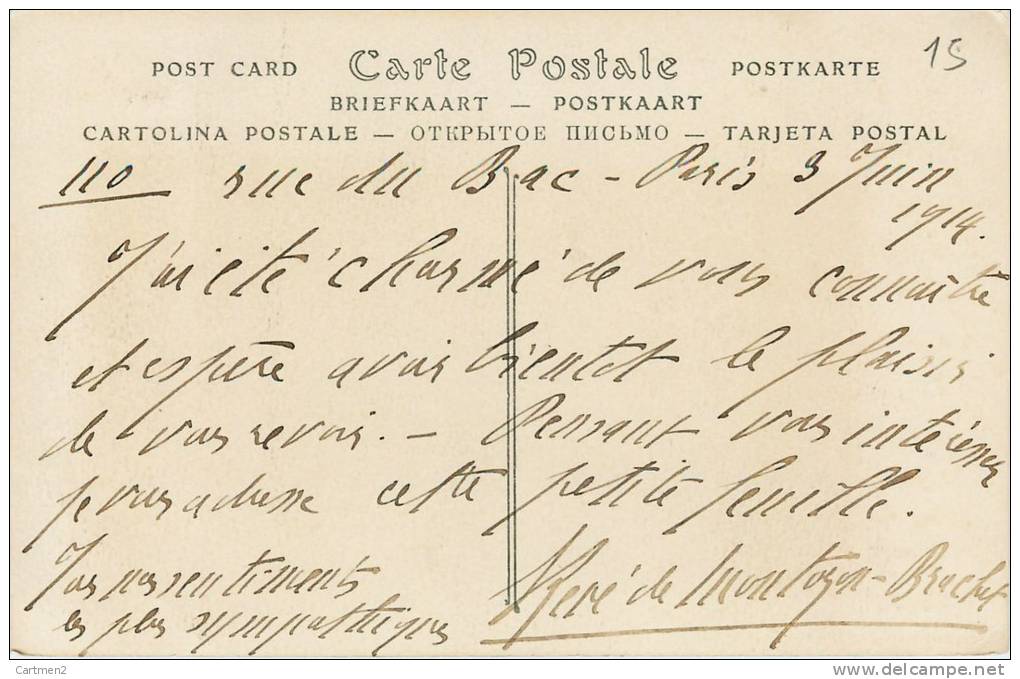 15
POST CARD Carte Postale POSTKARTE
BRIEFKAART — POSTKAART
CARTOLINA POSTALE — ОТКРЫТОЕ ПИСЬМО — TARJETA POSTAL
110 rue du Bac - Paris 3 Juin
1914.
J'ai été charmé de vous connaître
et espère avoir bientot le plaisir
de vous revoir. — Pensant vous intéresser
je vous adresse cette petite feuille.
mes sentiments
les plus sympathiques
de Montozon-Brachet
Cartmen2
delcampe.net